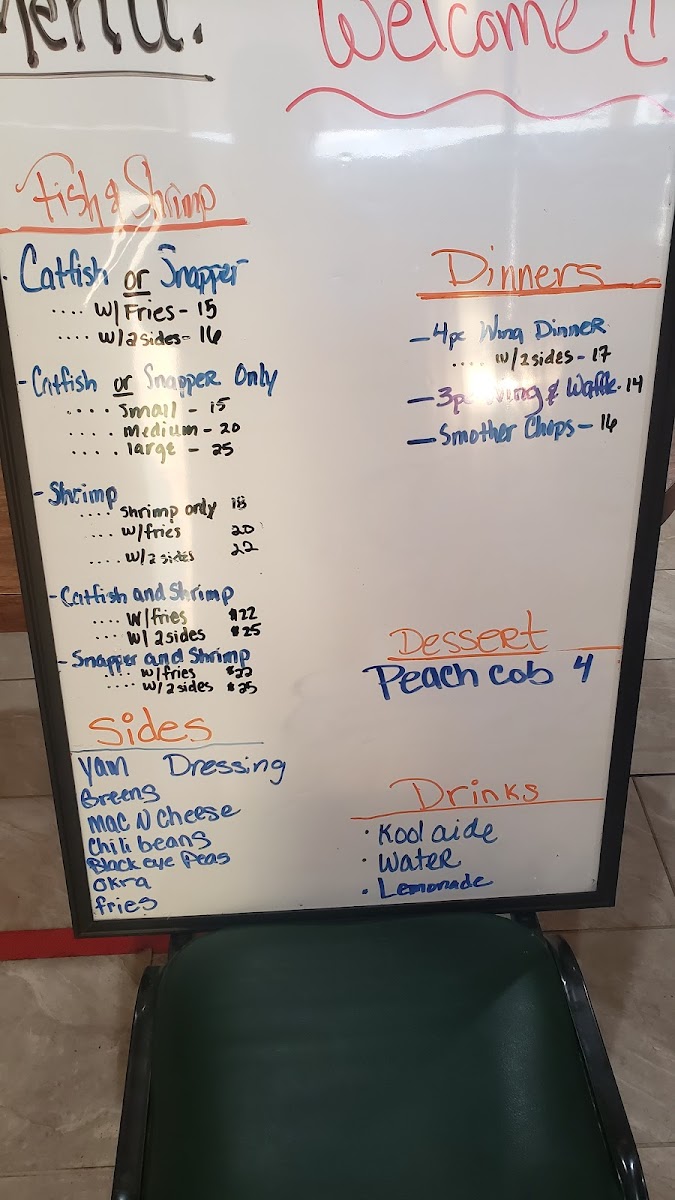 Menu.
Welcome!!
Fish & Shrimp
Catfish or Snapper
.... w/Fries - 15
.... w/2sides - 16
- Catfish or Snapper Only
.... Small - 15
.... medium - 20
.... large - 25
- Shrimp
.... shrimp only 18
... w/fries 20
.... w/2 sides 22
- Catfish and Shrimp
.... w/fries $22
.... w/ 2sides $25
- Snapper and Shrimp
.... w/fries $22
.... w/2 sides $25
Sides
Yam Dressing
Greens
Mac N Cheese
Chili beans
Black eye Peas
Okra
fries
Dinners
- 4pc Wing Dinner
.... w/2sides - 17
- 3pc Wing & Waffle - 14
- Smother Chops - 16
Dessert
Peach Cob 4
Drinks
• Kool aide
• Water
• Lemonade